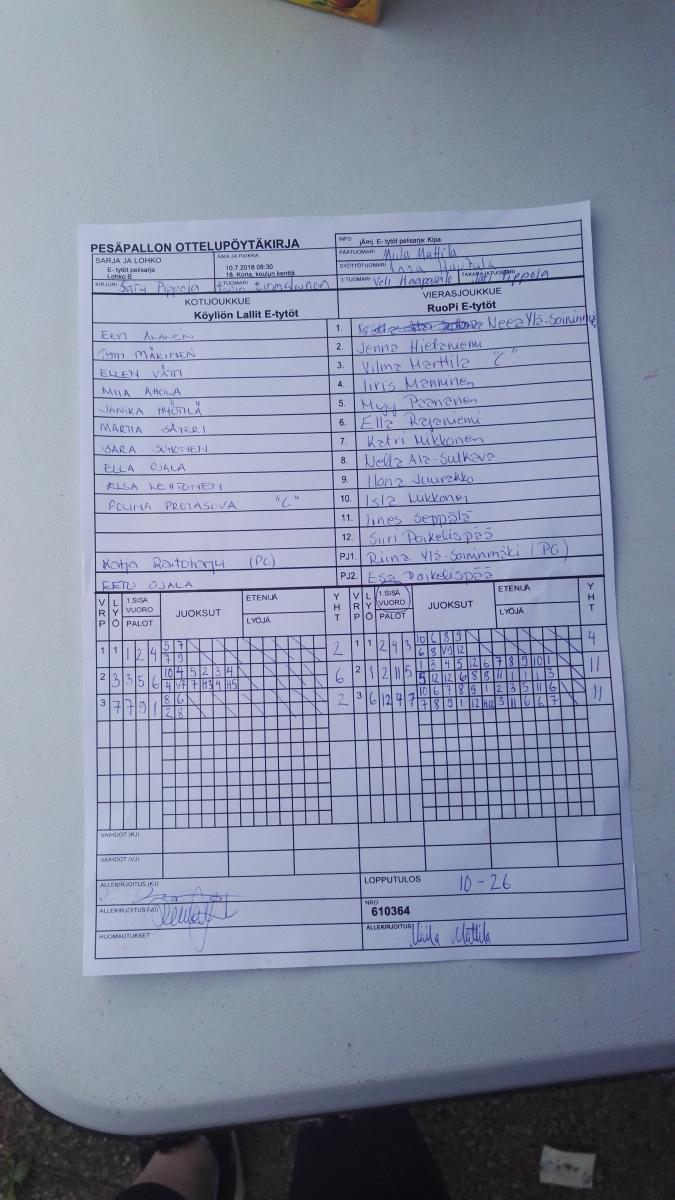 PESÄPALLON OTTELUPÖYTÄKIRJA
INFO jÄerj. E- tytöt pelisarja: Kipa
SARJA JA LOHKO
E- tytöt pelisarja
Lohko B
AIKA JA PAIKKA
10.7.2018 08:30
18. Koria, koulun kenttä
PÄÄTUOMARI Miila Mattila
SYÖTTÖTUOMARI
KIRJURI Satu Pippola
2-TUOMARI Suomalainen
3-TUOMARI Veli Haapasalo
TAKARAJATUOMARI Jati Pippola
KOTIJOUKKUE
Köyliön Lallit E-tytöt
VIERASJOUKKUE
RuoPi E-tytöt
EEVI ALANEN
1. Neea Ylä-Soininmäki
TYTTI MÄKINEN
2. Jenna Hietaniemi
ELLEN VÄTTI
3. Vilma Marttila "C"
MIILA AHOLA
4. Iiris Manninen
JANIKA HYÖTILÄ
5. Myy Paananen
MARTTA SÄTERI
6. Ella Rajaniemi
SARA SUHONEN
7. Katri Mikkonen
ELLA OJALA
8. Nella Ala-Sulkava
ELSA LEHTONEN
9. Ilona Juurakko
POLINA PROTASOVA "C"
10. Isla Mikkonen
11. Iines Seppälä
12. Siiri Paikelispää
Katja Raitoharju (PG)
PJ1. Riina Ylä-Soininmäki (PG)
EETU OJALA
PJ2. Esa Paikelispää
VRP LYÖ 1.SISÄ VUORO PALOT JUOKSUT ETENIJÄ LYÖJÄ YHT
VRP LYÖ 1.SISÄ VUORO PALOT JUOKSUT ETENIJÄ LYÖJÄ YHT
1 1 1 2 4 5 7 2
7 9
1 1 2 4 3 10 6 8 9 4
6 8 V9 12
2 3 3 5 6 10 4 5 2 3 4 6
4 V7 7 H3 4 H5
2 1 2 11 5 1 3 4 5 12 6 7 8 9 10 1 11
5 12 12 6 8 8 11 1 1 1 3
3 7 7 9 1 8 6 2
2 8
3 6 12 4 7 10 6 7 8 9 1 2 3 5 11 6 11
7 8 9 1 12 H12 3 11 6 6 7
VAIHDOT (KJ)
VAIHDOT (VJ)
ALLEKIRJOITUS (KJ)
LOPPUTULOS 10 - 26
ALLEKIRJOITUS (VJ)
NRO
610364
HUOMAUTUKSET
ALLEKIRJOITUS Miila Mattila